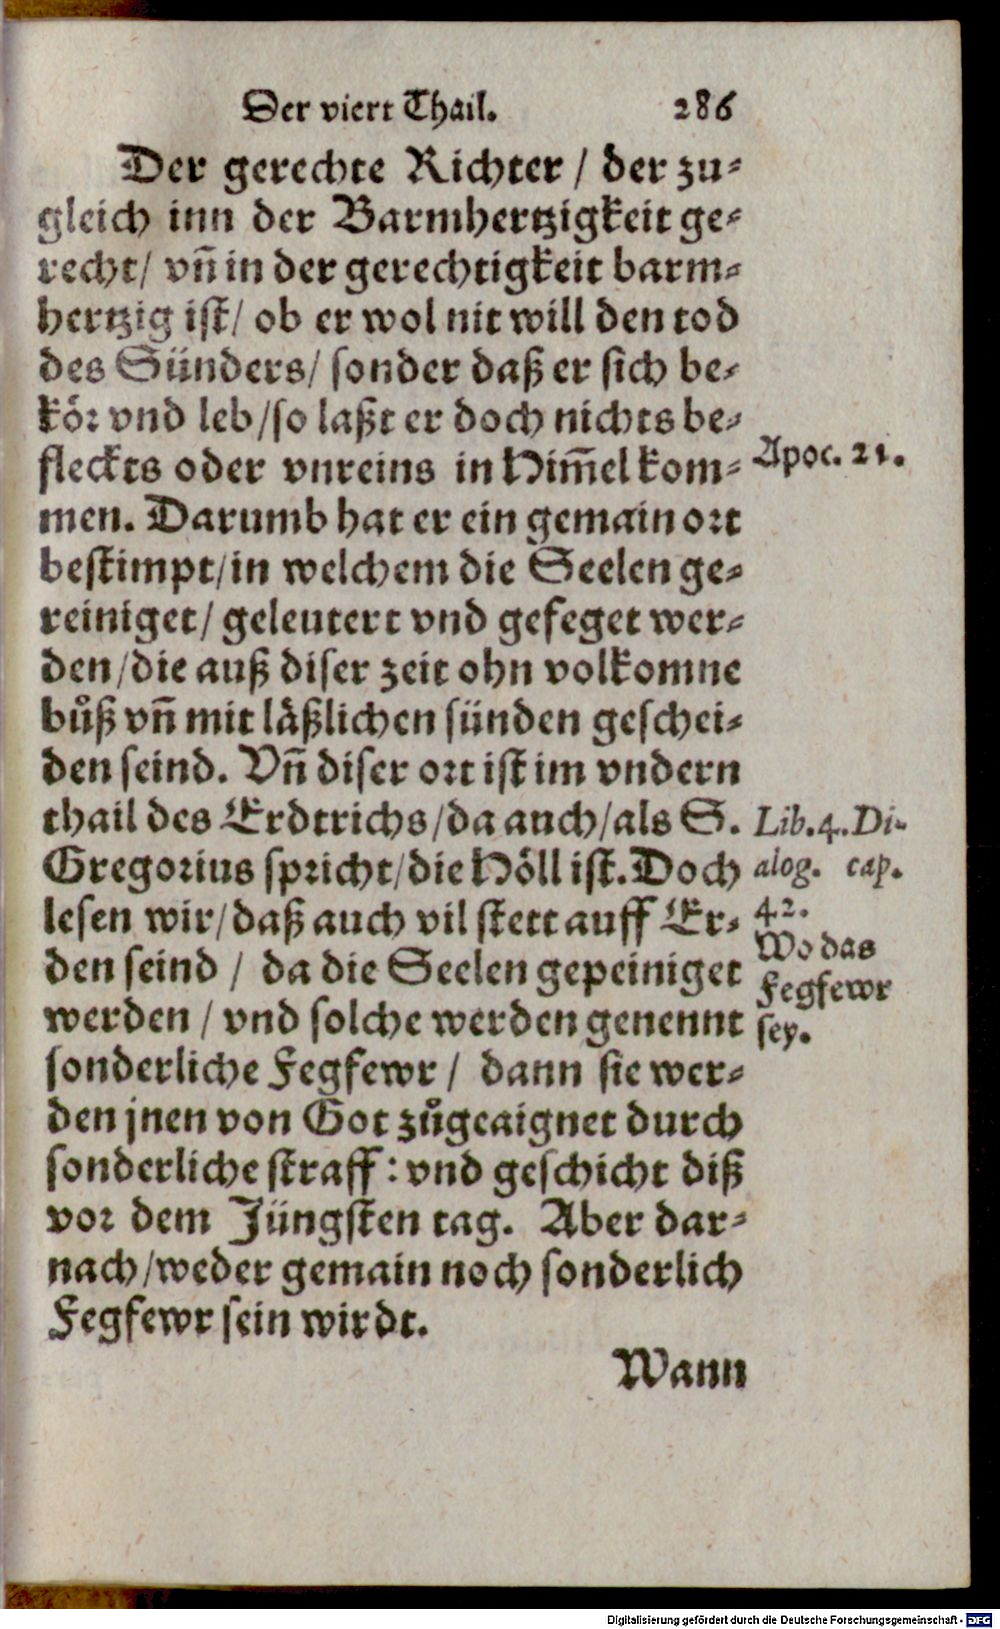 Der viert Thail. 286
Der gerechte Richter / der zu⸗
gleich inn der Barmhertzigkeit ge⸗
recht / vñ in der gerechtigkeit barm⸗
hertzig ist / ob er wol nit will den tod
des Sünders / sonder daß er sich be⸗
kör vnd leb / so laßt er doch nichts be⸗
fleckts oder vnreins in Him̃el kom⸗
Apoc. 21.
men. Darumb hat er ein gemain ort
bestimpt / in welchem die Seelen ge⸗
reiniget / geleutert vnd gefeget wer⸗
den / die auß diser zeit ohn volkomne
bůß vñ mit läßlichen sünden geschei⸗
den seind. Vñ diser ort ist im vndern
thail des Erdtrichs / da auch / als S.
Lib. 4. Di-
Gregorius spricht / die Höll ist. Doch
alog. cap.
lesen wir / daß auch vil stett auff Er⸗
42.
Wo das
den seind / da die Seelen gepeiniget
Fegfewr
werden / vnd solche werden genennt
sey.
sonderliche Fegfewr / dann sie wer⸗
den jnen von Got zůgeaignet durch
sonderliche straff : vnd geschicht diß
vor dem Jüngsten tag. Aber dar⸗
nach / weder gemain noch sonderlich
Fegfewr sein wirdt.
Wann
Digitalisierung gefördert durch die Deutsche Forschungsgemeinschaft - DFG